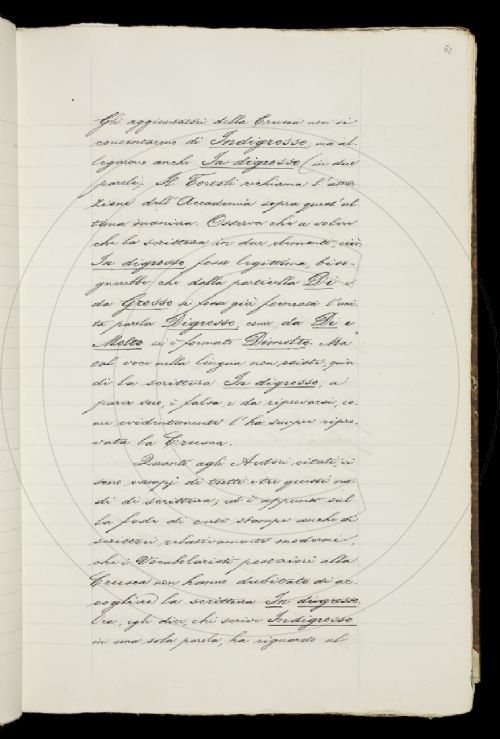 61
Gli aggiuntatori della Crusca non si
contentarono di Indigrosso, ma al-
legarono anche In digrosso (in due
parole). Il Torcoli richiama l'atten-
zione dell'Accademia sopra quest'ul-
tima maniera. Osserva che a volere
che la scrittura in due elementi, cioè
In digrosso fosse legittima, biso-
gnerebbe che dalla particella Di e
da Grosso si fosse già formata l'uni-
ta parola Digrosso, come da Di e
Molto si è formato Dimolto. Ma
tal voce nella lingua non esiste, quin-
di la scrittura In digrosso, a
parer suo, è falsa e da riprovarsi, co-
me evidentemente l'ha sempre ripro-
vata la Crusca.
Quanto agli Autori citati, vi
sono esempj di tutti e tre questi mo-
di di scrittura; ed è appunto sul-
la fede di certe stampe anche di
scrittori relativamente moderni,
che i Vocabolaristi posteriori alla
Crusca non hanno dubitato di ac-
cogliere la scrittura In digrosso.
Ora, egli dice, chi scrive Indigrosso
in una sola parola, ha riguardo al